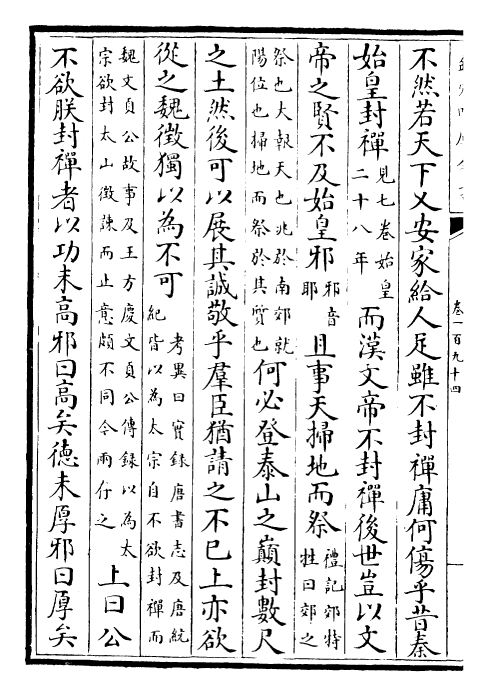 卷一百九十四
不然若天下乂安家給人足雖不封禪庸何傷乎昔秦
始皇封禪見七卷始皇二十八年而漢文帝不封禪後世豈以文
帝之賢不及始皇邪邪音耶且事天掃地而祭禮記郊特牲曰郊之
祭也大報天也兆於南郊就陽位也掃地而祭於其質也何必登泰山之巔封數尺
之土然後可以展其誠敬乎羣臣猶請之不已上亦欲
從之魏徵獨以為不可考異曰實録唐書志及唐統紀皆以為太宗自不欲封禪而
魏文貞公故事及王方慶文貞公傳録以為太宗欲封太山徵諫而止意頗不同今兩行之上曰公
不欲朕封禪者以功未高邪曰高矣德未厚邪曰厚矣